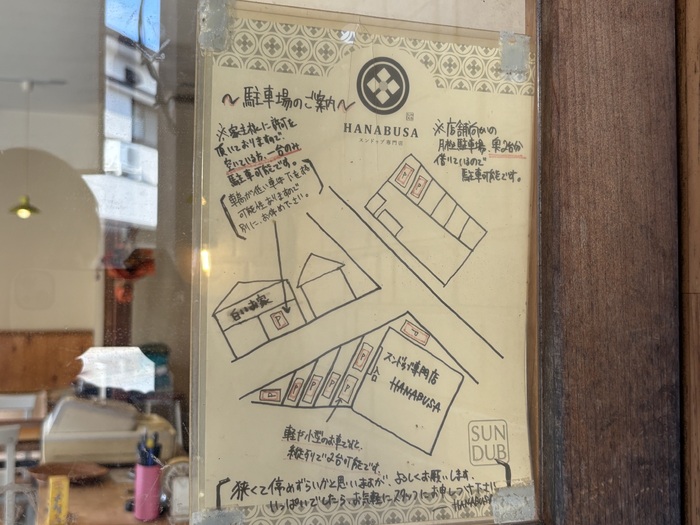 ～駐車場のご案内～
HANABUSA
スンドゥブ専門店
※家主様に許可を
頂いておりますので
空いている方、一台のみ
駐車可能です。
車高が低い車は下をする
可能性ありますので
別にお停め下さい。
※店舗向かいの
月極駐車場、奥2台分
借りてくるので
駐車可能です。
白いお家
P
P
P
P
スンドゥブ専門店
HANABUSA
入口
P
P
P
P
P
P
軽や小型のお車でしたら、
縦列で2台可能です。
SUN
DUB
狭くて停めずらいかと思いますが、よろしくお願いします。
いっぱいでしたら、お気軽にスタッフにお申しつけ下さい
HANABUSA